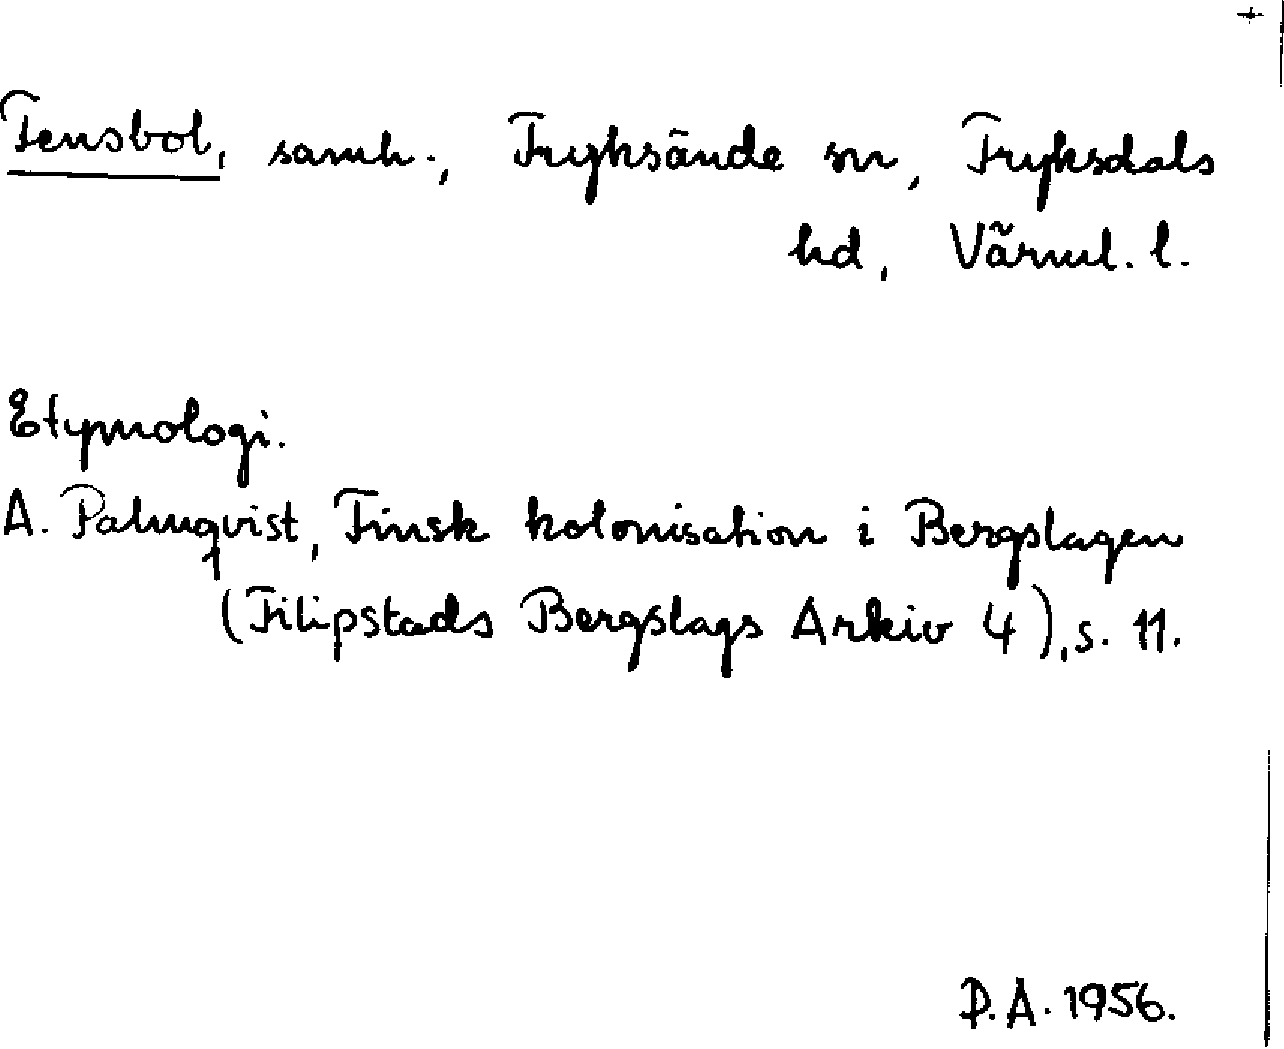 +
Fensbol, samh., Fryksände sn, Fryksdals
hd, Värml. l.
Etymologi.
A. Palmqvist, Finsk kolonisation i Bergslagen
(Filipstads Bergslags Arkiv 4), s. 11.
D.A. 1956.